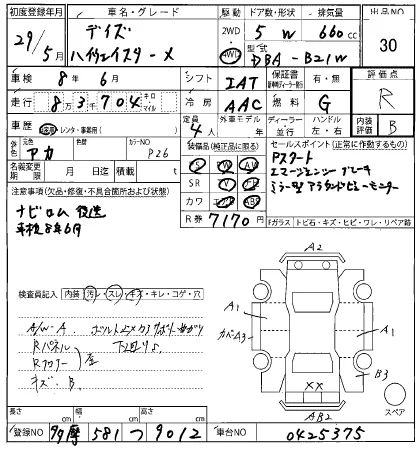 初度登録年月 車名・グレード 駆動 ドア数・形状 排気量 出品NO
29/5月 デイズ ハイウェイスター・X 2WD 4WD 5 W 660cc 30
型式 DBA-B21W
車検 8年 6月 シフト IAT 保証書 有・無 評価点 R
走行 8万3千704 キロ マイル 冷房 AAC 燃料 G
車歴 自家用 レンタ・事業用( ) 定員 4人 外車モデル ディーラー 並行 ハンドル 左・右 内装評価 B
外装色 元色 アカ 色替 カラーNO P26 装備品(純正品に限る) セールスポイント(正常に作動するもの)
名義変更期限 月 日迄 積載 t S PS AW
SR PW ナビ
カワ エアB TV
Pスタート
エマージェンシーブレーキ
ミラー型アラウンドビューモニター
注意事項(欠品・修復・不具合箇所および状態) R券 7170円 Fガラス トビ石・キズ・ヒビ・ワレ・リペア跡
ナビロム 後送
車検8年6月
検査員記入 内装 汚レ・スレ・キズ・キレ・コゲ・穴
A/W-A
Rパネル
Rフロアー
キズ、B
A2
A1 A1
カバーA3
B3
XX
AB2
スペア
長さ cm 幅 cm 高さ cm
登録NO 多摩 581 つ 9012 車台NO 0425375